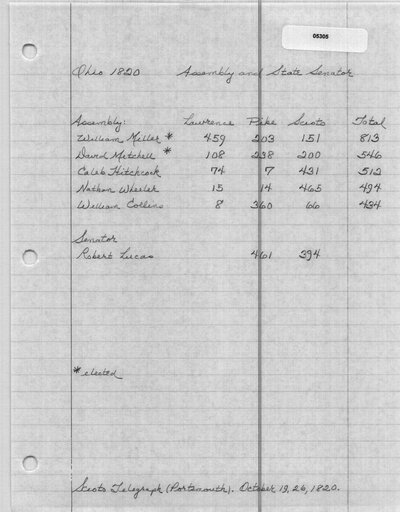 05305
Ohio 1820 Assembly and State Senator
Assembly: Lawrence Pike Scioto Total
William Miller * 459 203 151 813
David Mitchell * 108 238 200 546
Caleb Hitchcock 74 7 431 512
Nathan Wheeler 15 14 465 494
William Collins 8 360 66 434
Senator
Robert Lucas 461 394
* elected
Scioto Telegraph (Portsmouth). October 19, 26, 1820.